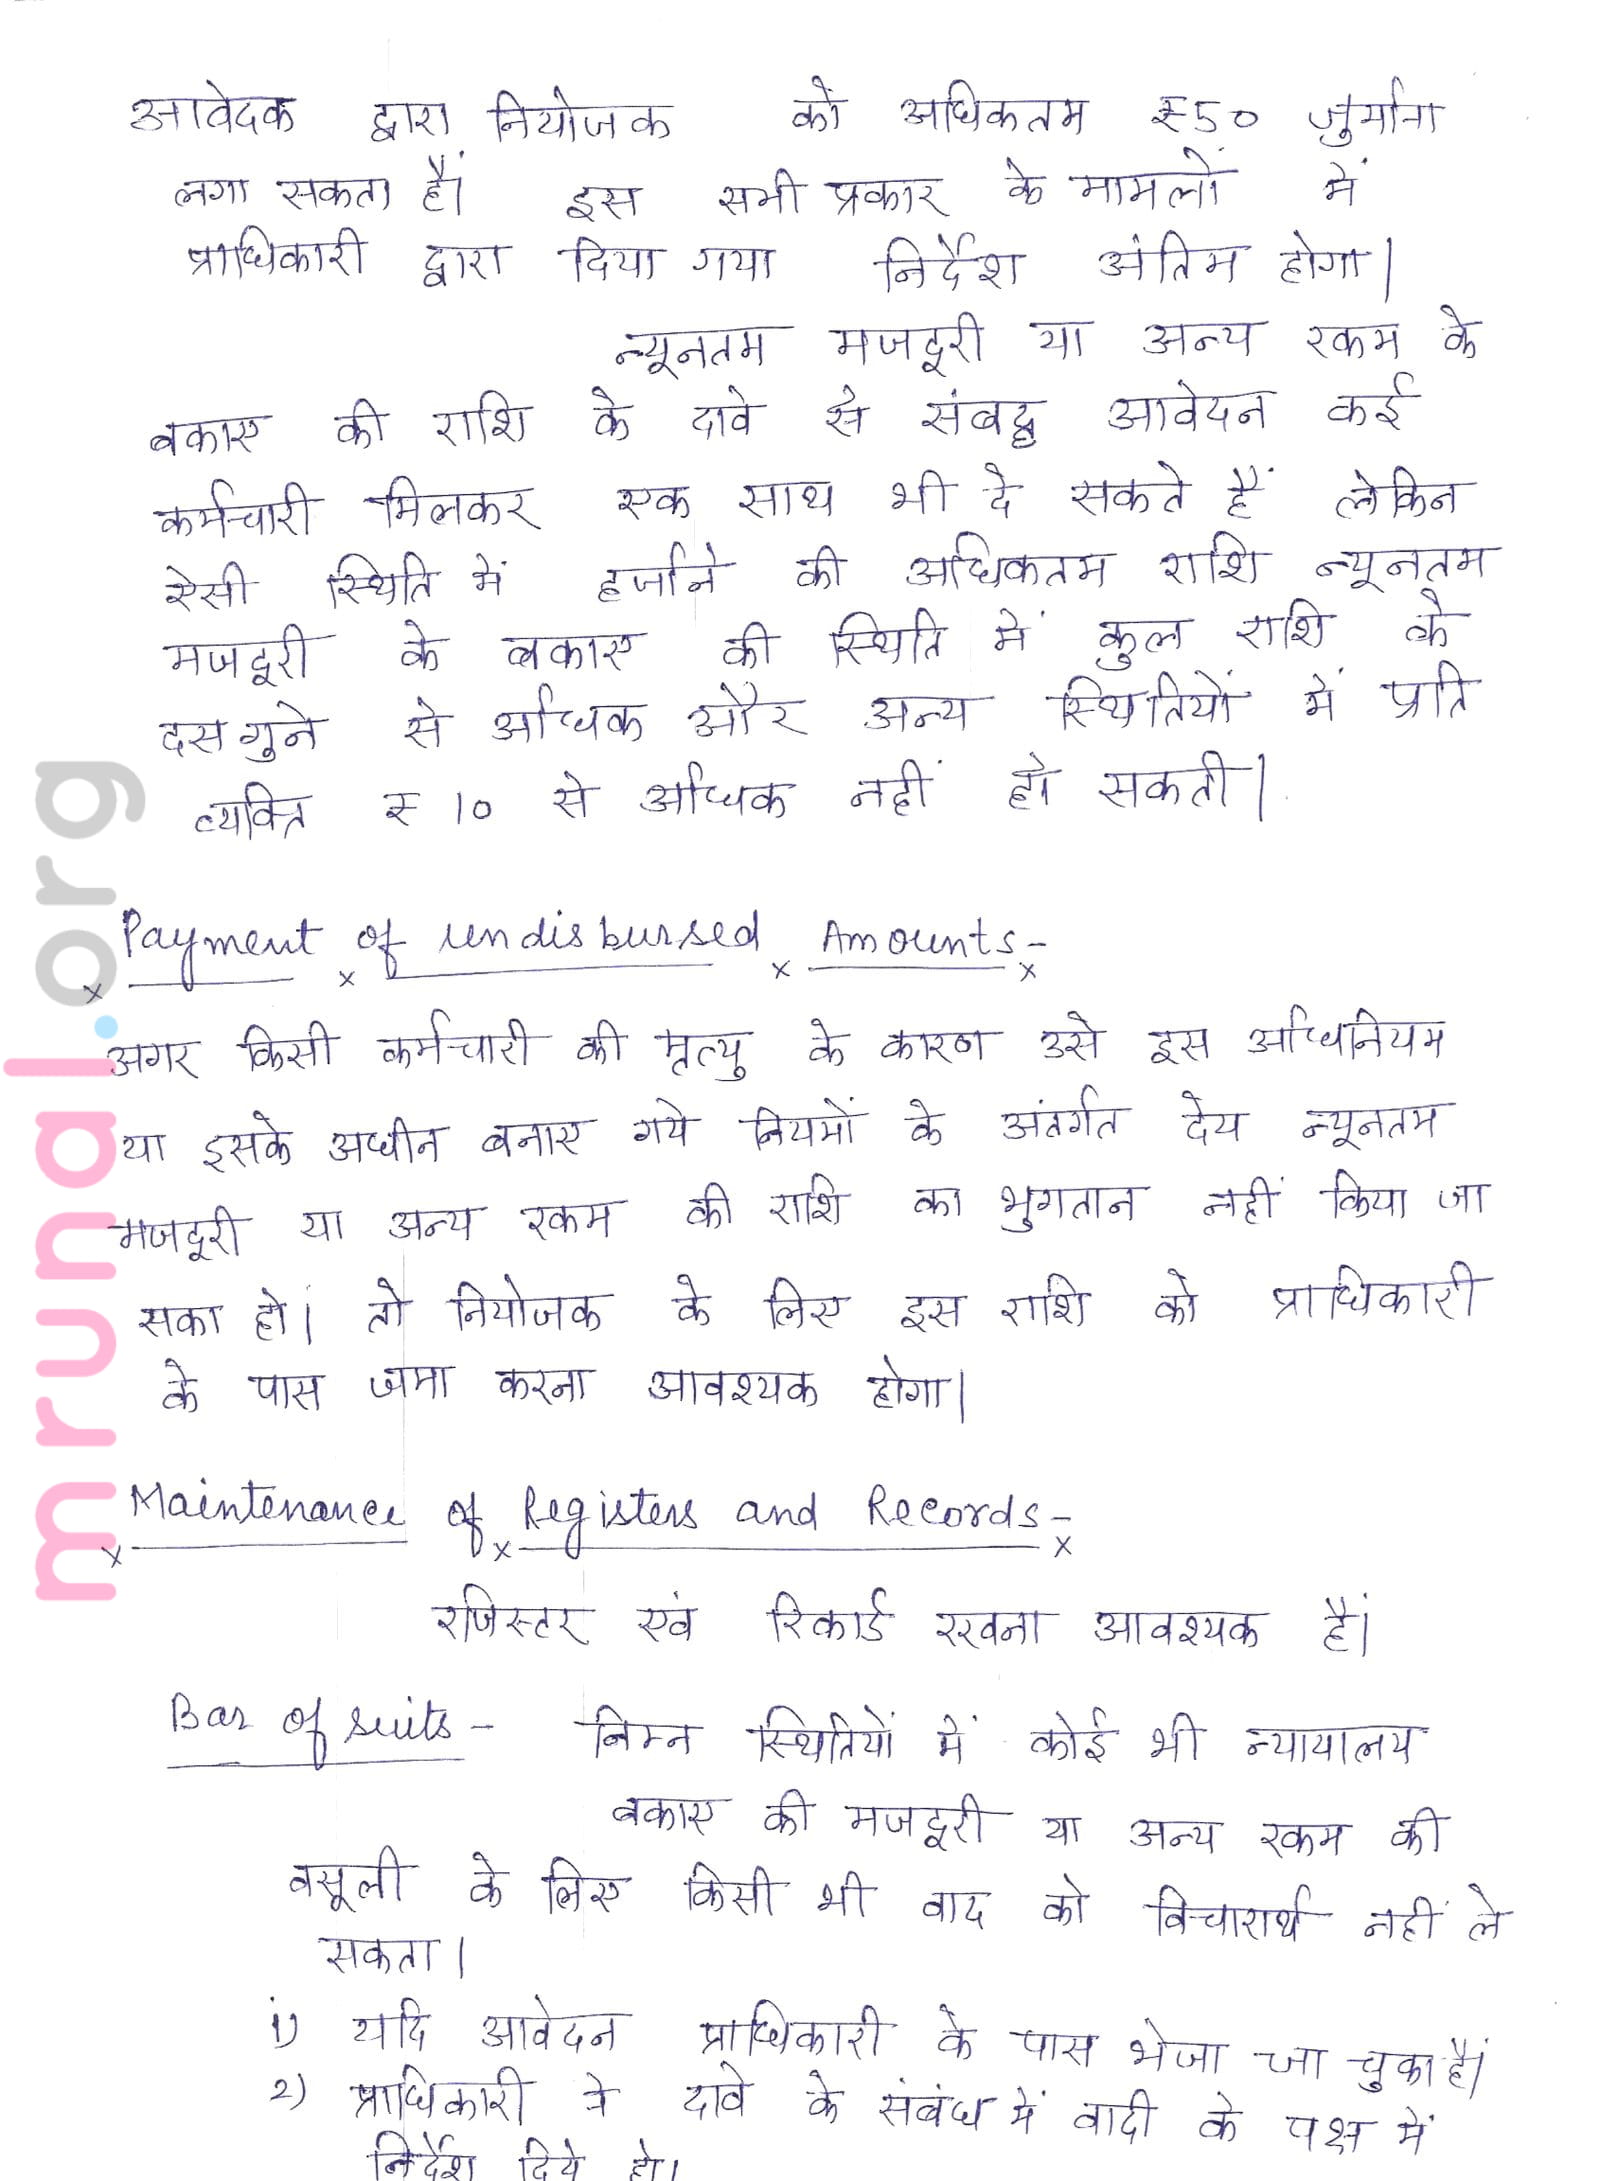 आवेदक द्वारा नियोजक को अधिकतम ₹50 जुर्माना
लगा सकता हैं। इस सभी प्रकार के मामलों में
प्राधिकारी द्वारा दिया गया निर्देश अंतिम होगा।
न्यूनतम मजदूरी या अन्य रकम के
बकाए की राशि के दावे से संबद्ध आवेदन कई
कर्मचारी मिलकर एक साथ भी दे सकते हैं लेकिन
ऐसी स्थिति में हर्जाने की अधिकतम राशि न्यूनतम
मजदूरी के बकाए की स्थिति में कुल राशि के
दस गुने से अधिक और अन्य स्थितियों में प्रति
व्यक्ति ₹ 10 से अधिक नहीं हो सकती।
Payment of undisbursed Amounts-
अगर किसी कर्मचारी की मृत्यु के कारण उसे इस अधिनियम
या इसके अधीन बनाए गये नियमों के अंतर्गत देय न्यूनतम
मजदूरी या अन्य रकम की राशि का भुगतान नहीं किया जा
सका हो। तो नियोजक के लिए इस राशि को प्राधिकारी
के पास जमा करना आवश्यक होगा।
Maintenance of Registers and Records-
रजिस्टर एवं रिकार्ड रखना आवश्यक हैं।
Bar of suits- निम्न स्थितियों में कोई भी न्यायालय
बकाए की मजदूरी या अन्य रकम की
वसूली के लिए किसी भी वाद को विचारार्थ नहीं ले
सकता।
1) यदि आवेदन प्राधिकारी के पास भेजा जा चुका हैं।
2) प्राधिकारी ने दावे के संबंध में वादी के पक्ष में
निर्देश दिये हो।
mrunal.org